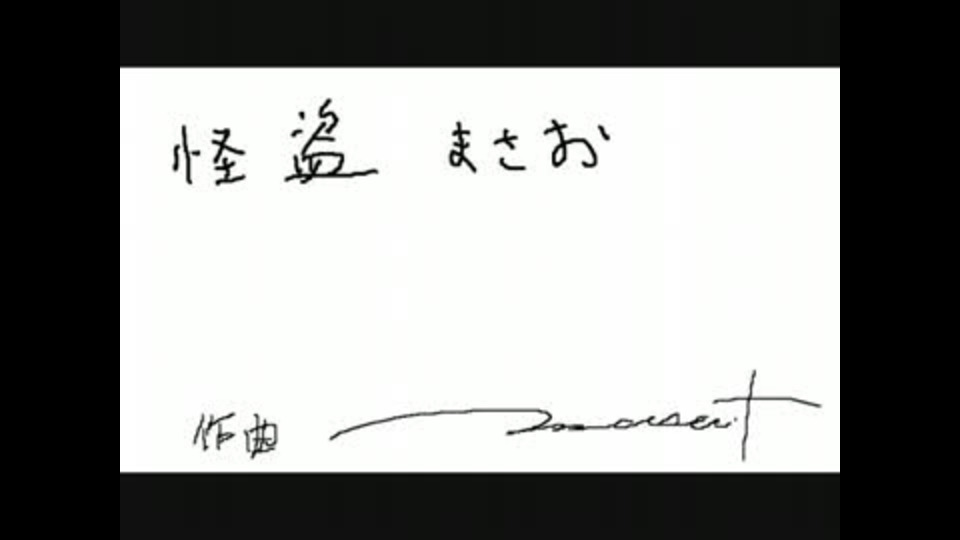 怪盗 まさお
作曲